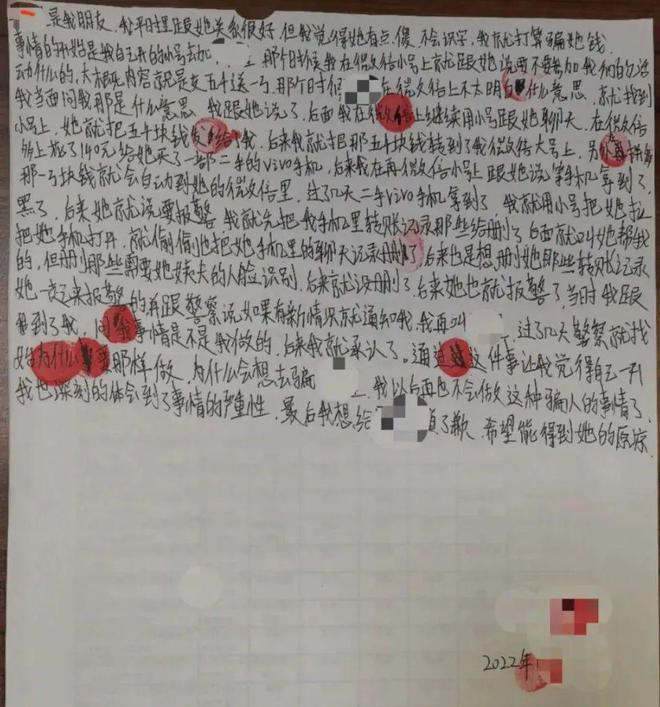 是我朋友，我平日里跟她关系很好，但我觉得她有点傻，不会识字，我就打算骗她钱
事情的开始是我自己开的小号去加 ，那个时候我在微信小号上就跟她说要不要参加我们的活
动什么的，大概内容就是交五十送一号，那个时候 在微信上不太明白什么意思，就找到
我当面问我那是什么意思，我跟她说了，后面我在微信上继续用小号跟她聊天，在微信
小号上，她就把五十块钱发给我，后来我就把那五十块钱转到了我微信大号上，另外再拼多
多上花了140元给她买了一部二手的vivo手机，后来我在再微信小号上跟她说等手机拿到了，
那一号块钱就会自动到她的微信里，过了几天二手vivo手机拿到了，我就用小号把她拉
黑了，后来她就说要报警，我就先把我手机里转账记录那些给删了，后面就叫她帮我
把她手机打开，就偷偷地把她手机里的聊天记录删了，后来也是想删她那些转账记录
的，但删那些需要她姨夫的人脸识别，后来就没删了，后来她也就报警了，当时我跟
她一起来报警的，并跟警察说如果有新情况就通知我，我再叫 ，过了几天警察就找
到了我，问我事情是不是我做的，后来我就承认了。通过这件事让我觉得自己一开
始为什么要那样做，为什么会想去骗 ，我以后面也不会做这种骗人的事情了，
我也深刻的体会到了事情的严重性，最后我想给 道了歉，希望能得到她的原谅
2022年